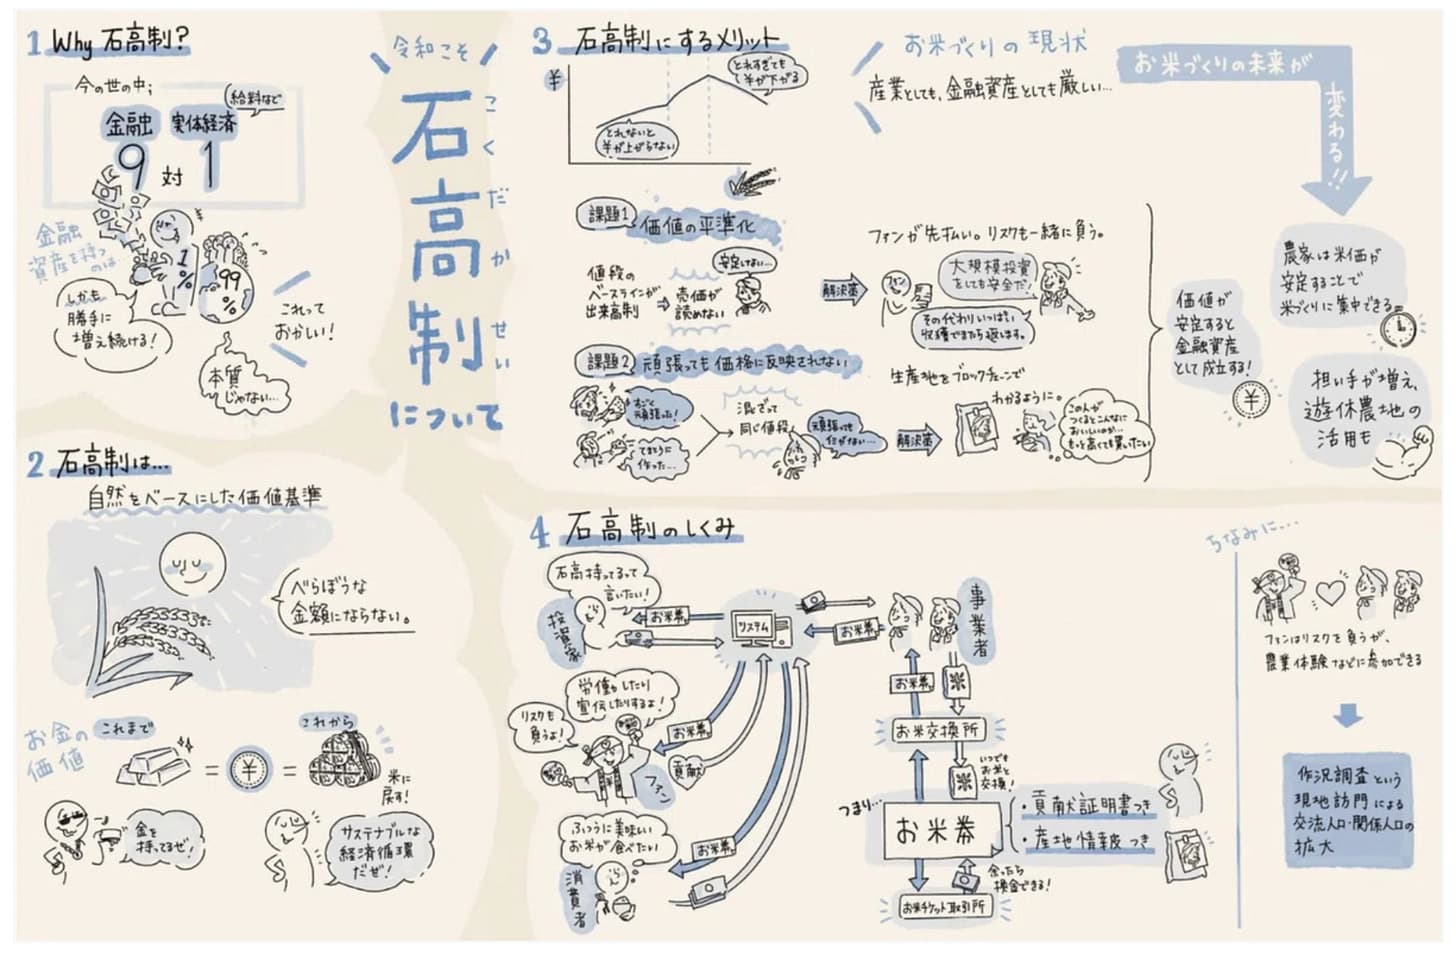 令和こそ
石高制
こくだかせい
について
1 Why 石高制?
今の世の中;
給料など
金融 実体経済
9 対 1
金融
資産を持つ
のは…
¥
1
%
99
%
しかも
勝手に
増え続ける!
これって
おかしい!
本質
じゃない…
2 石高制は…
自然をベースにした価値基準
べらぼうな
金額にならない。
お金の
価値
これまで
これから
= ¥ =
米に
戻す!
金を
持ってるぜ!
サステナブルな
経済循環
だぜ!
3 石高制にするメリット
¥
とれすぎても
¥が下がる
とれないと
¥が上がらない
課題1 価値の平準化
値段の
ベースラインが
出来高制
⇒ 売価が
読めない
安定しない…
解決策
ファンが先払い。リスクも一緒に負う。
大規模投資
をしても安全だ!
その代わりいっぱい
収穫できたら返します。
課題2 頑張っても価格に反映されない
すごく
頑張った!
てきとうに
作った…
混ざって
同じ値段
頑張っても
仕方ない…
解決策
生産地をブロックチェーンで
わかるように。
この人が
つくるとこんなに
おいしいのか…
もっと高くても買いたい
お米づくりの現状
産業としても、金融資産としても厳しい…
お米づくりの未来が
変わる!!
価値が
安定すると
金融資産
として成立する!
¥
農家は米価が
安定することで
米づくりに集中できる
担い手が増え、
遊休農地の
活用も
4 石高制のしくみ
石高持ってるって
言いたい!
投資家
お米券
システム
お米券
事業者
労働したり
宣伝したりするよ!
リスクも
負うよ!
ファン
お米券
貢献
ふつうに美味しい
お米が食べたい
消費者
お米券
お米券
米
お米交換所
米
いつでも
お米と
交換!
つまり…
お米券
・貢献証明書つき
・産地情報つき
余ったら
換金できる!
お米チケット取引所
ちなみに…
ファンはリスクを負うが、
農業体験などに参加できる
作況調査という
現地訪問による
交流人口・関係人口の
拡大